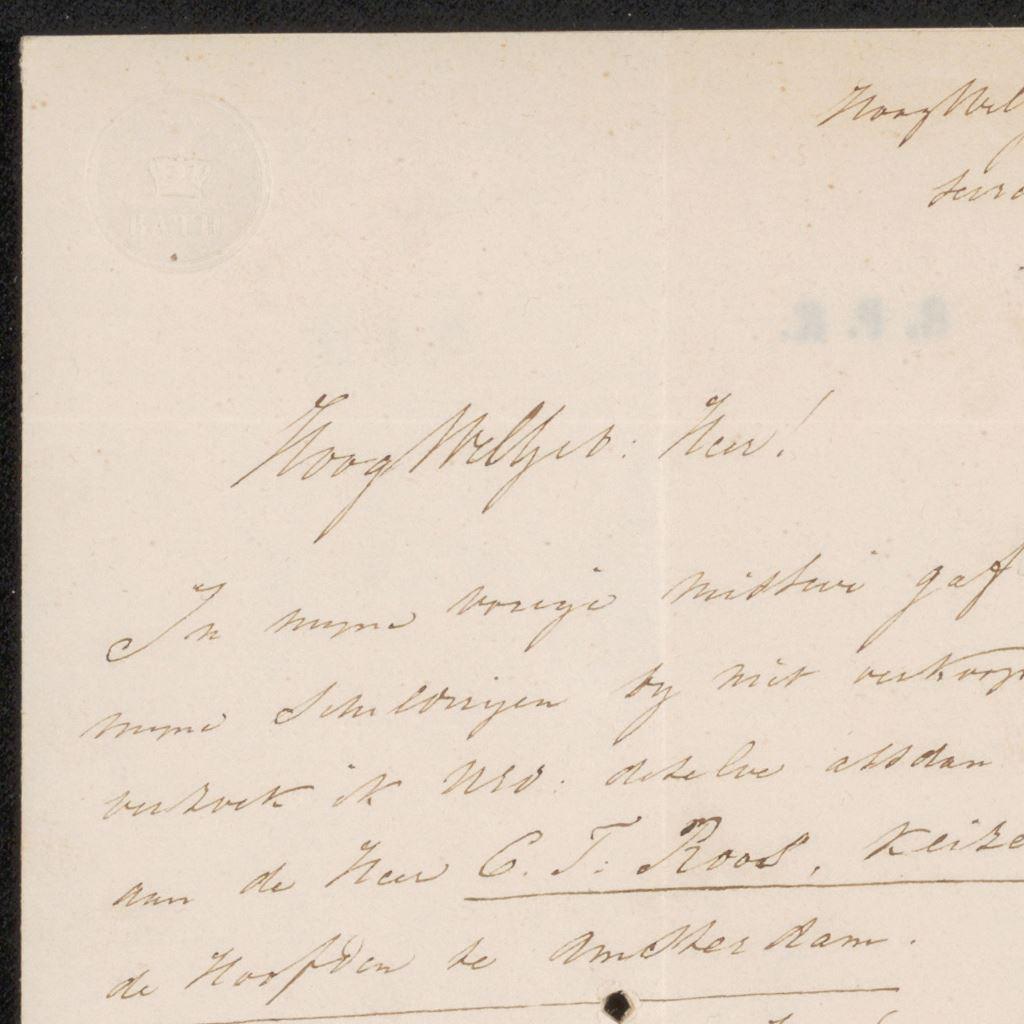 HoogWel
BATH
Hoog WelGeb: Heer!
In myne vorige missive gaf
myne Schilderyen by niet verkoop
verzoek ik UEd: dezelve alsdan
aan de Heer C. F: Roos, Keize
de Hoofden te Amsterdam.